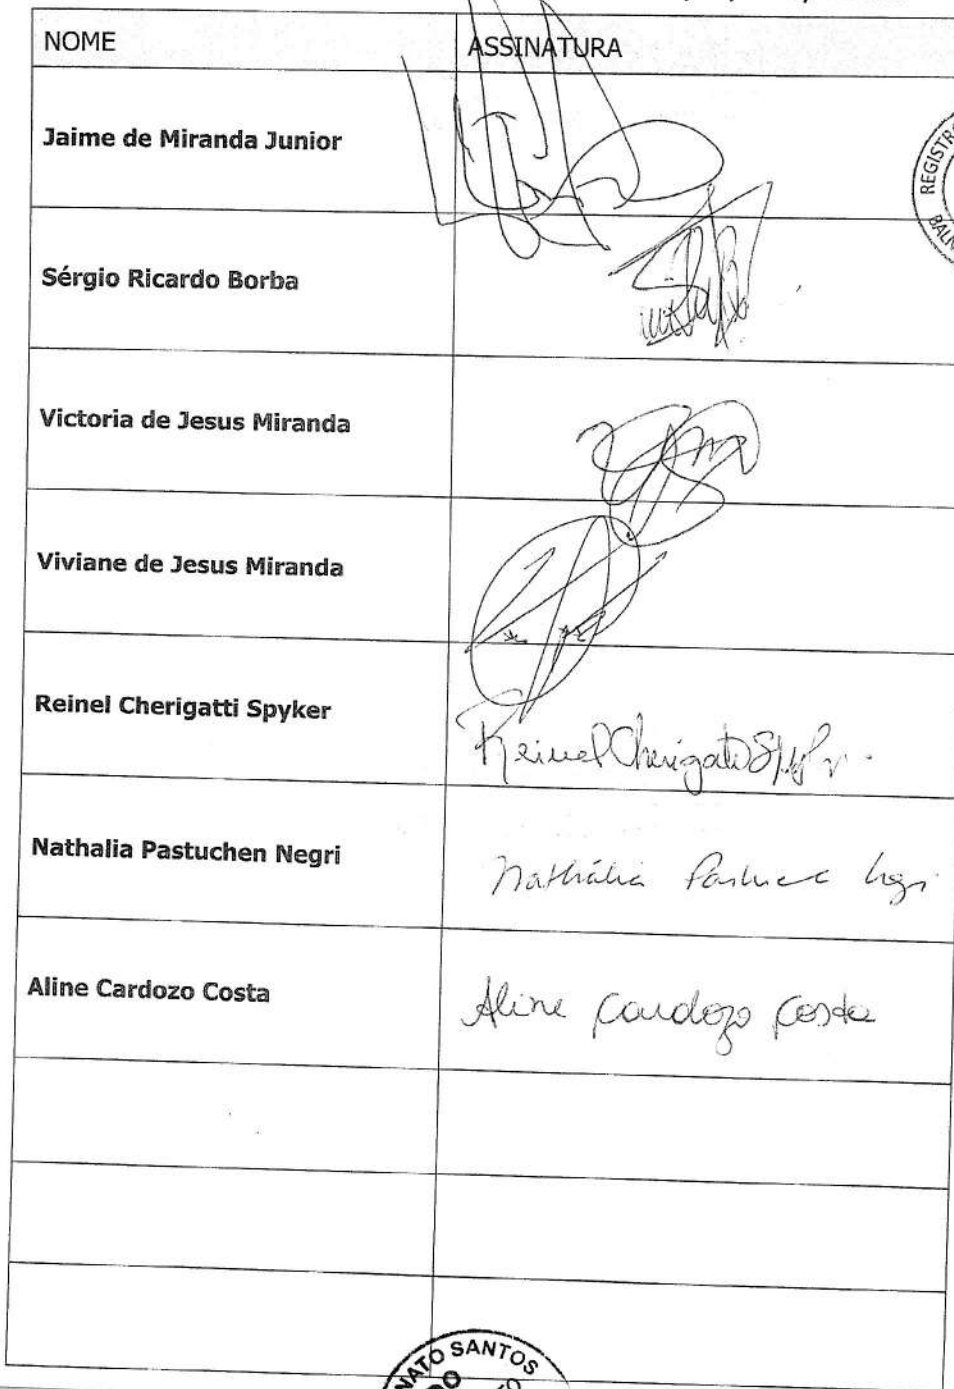 NOME ASSINATURA
REGISTR
BALN
Jaime de Miranda Junior
Sérgio Ricardo Borba
Victoria de Jesus Miranda
Viviane de Jesus Miranda
Reinel Cherigatti Spyker
Reinel Cherigatti
Nathalia Pastuchen Negri
Nathália
Aline Cardozo Costa Aline Cardozo Costa
NATO SANTOS